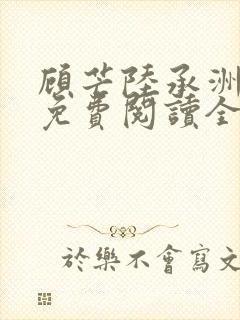 顧芒陸承洲
免費閱讀全
於樂不會寫文